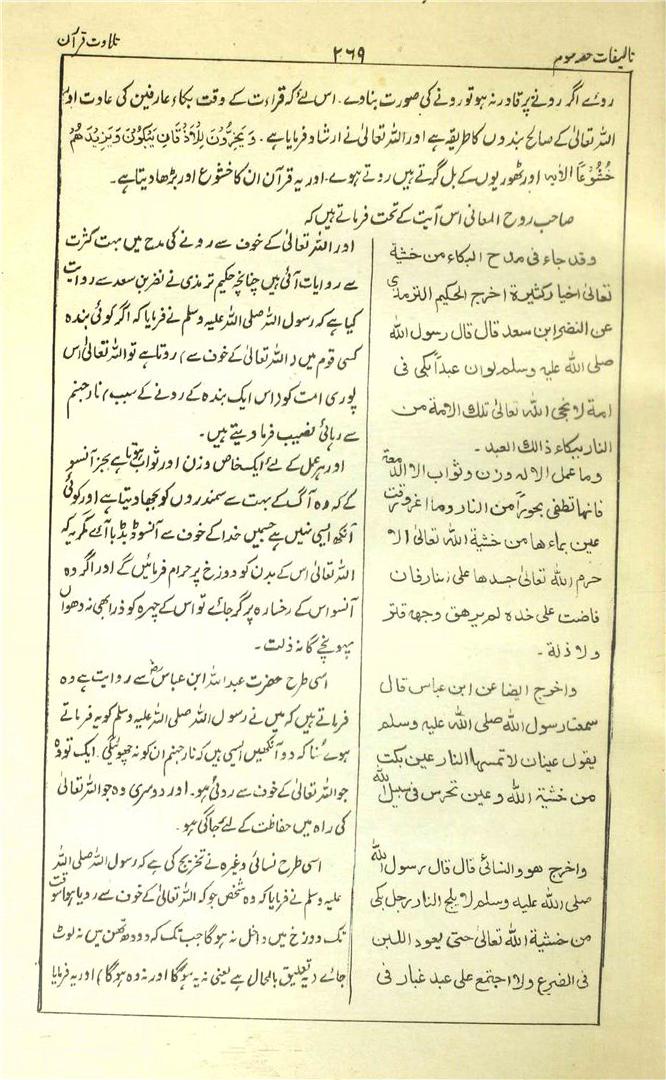 تالیفات حصہ سوم
۲۶۹
تلاوت قرآن
روئے اگر رونے پر قادر نہ ہو تو رونے کی صورت بنا دے ۔ اس لئے کہ قراءت کے وقت بکاء عارفین کی عادت اور
اللہ تعالیٰ کے صالح بندوں کا طریقہ ہے اور اللہ تعالیٰ نے ارشاد فرمایا ہے ۔ وَیَخِرُّوْنَ لِلْاَذْقَانِ یَبْکُوْنَ وَیَزِیْدُھُمْ
خُشُوْعًا الآیہ اور ٹھوریوں کے بل گرتے ہیں روتے ہوے ۔ اور یہ قرآن ان کا خشوع اور بڑھا دیتا ہے ۔
صاحب روح المعانی اس آیت کے تحت فرماتے ہیں کہ
وقد جاء فی مدح البکاء من خشیة
تعالیٰ اخبار کثیرة اخرج الحکیم الترمذی
عن النضر ابن سعد قال قال رسول اللہ
صلی اللہ علیہ وسلم لو ان عبداً بکی فی
امة لا نجی اللہ تعالیٰ تلک الامة من
النار ببکاء ذالک العبد ۔
وما عمل الا لہ وزن وثواب الا الدمعة
فانھا تطفی بحوراً من النار وما اغرورقت
عین بماءھا من خشیة اللہ تعالیٰ الا
حرم اللہ تعالیٰ جسدھا علی النار فان
فاضت علی خدہ لم یرھق وجھہ قتر
ولا ذلة ۔
واخرج ایضا عن ابن عباس قال
سمعت رسول اللہ صلی اللہ علیہ وسلم
یقول عینان لا تمسھا النار عین بکت
من خشیة اللہ وعین تحرس فی سبیل اللہ
واخرج ھو والنسائی قال قال رسول اللہ
صلی اللہ علیہ وسلم لا یلج النار رجل بکی
من خشیة اللہ تعالیٰ حتی یعود اللبن
فی الضرع ولا اجتمع علی عبد غبار فی
اور اللہ تعالیٰ کے خوف سے رونے کی مدح میں بہت کثرت
سے روایات آئی ہیں چنانچہ حکیم ترمذی نے نضر بن سعد سے روایت
کیا ہے کہ رسول اللہ صلی اللہ علیہ وسلم نے فرمایا کہ اگر کوئی بندہ
کسی قوم میں (اللہ تعالیٰ کے خوف سے) روتا ہے تو اللہ تعالیٰ اس
پوری امت کو (اس ایک بندہ کے رونے کے سبب) نار جہنم
سے رہائی نصیب فرما دیتے ہیں ۔
اور ہر عمل کے لئے ایک خاص وزن اور ثواب ہوتا ہے بجز آنسو
کے کہ وہ آگ کے بہت سے سمندروں کو بجھا دیتا ہے اور کوئی
آنکھ ایسی نہیں ہے جسمیں خدا کے خوف سے آنسو ڈبڈبا آئے مگر یہ کہ
اللہ تعالیٰ اس کے بدن کو دوزخ پر حرام فرمائیں گے اور اگر وہ
آنسو اس کے رخسارہ پر گر جائے تو اس کے چہرہ کو ذرا بھی نہ دھواں
پہونچے گا نہ ذلت ۔
اسی طرح حضرت عبد اللہ ابن عباسؓ سے روایت ہے وہ
فرماتے ہیں کہ میں نے رسول اللہ صلی اللہ علیہ وسلم کو یہ فرماتے
ہوئے سُنا کہ دو آنکھیں ایسی ہیں کہ نار جہنم ان کو نہ چھوئیگی ۔ ایک تو وہ
جو اللہ تعالیٰ کے خوف سے روئی ہو ۔ اور دوسری وہ جو اللہ تعالیٰ
کی راہ میں حفاظت کے لئے جاگی ہو ۔
اسی طرح نسائی وغیرہ نے تخریج کی ہے کہ رسول اللہ صلی اللہ
علیہ وسلم نے فرمایا کہ وہ شخص جو کہ اللہ تعالیٰ کے خوف سے رویا ہو اسوقت
تک دوزخ میں داخل نہ ہوگا جب تک کہ دودھ تھن میں نہ لوٹ
جائے (یہ تعلیق بالمحال ہے یعنی نہ یہ ہوگا اور نہ وہ ہوگا) اور یہ فرمایا